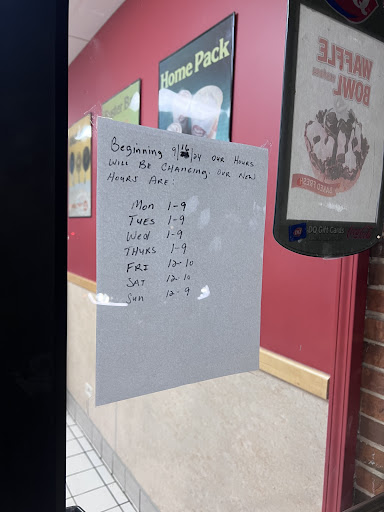 Home Pack
WAFFLE
BOWL
sundaes
BAKED FRESH
DQ Gift Cards
Beginning 9/16/24 OUR HOURS
WILL BE CHANGING. OUR NEW
HOURS ARE:
MON 1-9
TUES 1-9
Wed 1-9
THURS 1-9
FRI 12-10
SAT 12-10
Sun 12-9